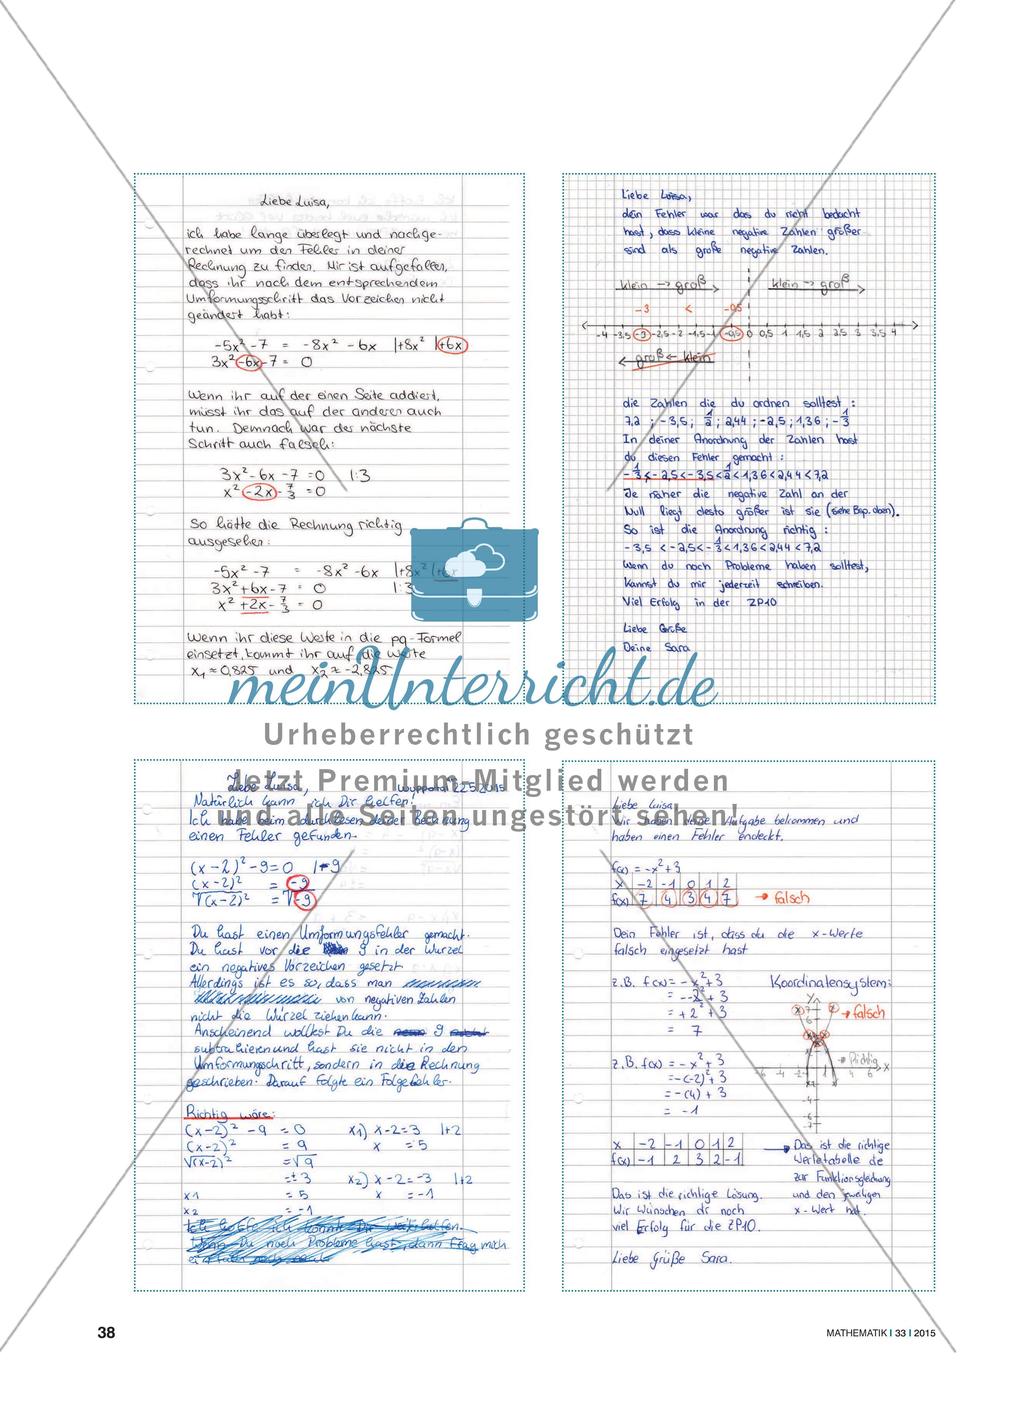 Liebe Luisa,
ich habe lange überlegt und nachge-
rechnet um den Fehler in deiner
Rechnung zu finden. Mir ist aufgefallen,
dass ihr nach dem entsprechendem
Umformungsschritt das Vorzeichen nicht
geändert habt:
-5x² -7 = -8x² -6x |+8x² |+6x
3x² -6x -7 = 0
Wenn ihr auf der einen Seite addiert,
müsst ihr das auf der anderen auch
tun. Demnach war der nächste
Schritt auch falsch:
3x² -6x -7 = 0 |:3
x² -2x - 7/3 = 0
So hätte die Rechnung richtig
ausgesehen:
-5x² -7 = -8x² -6x |+8x² |+6x
3x² +6x -7 = 0 |:3
x² +2x - 7/3 = 0
Wenn ihr diese Werte in die pq-Formel
einsetzt, kommt ihr auf die Werte
x₁ ≈ 0,825 und x₂ ≈ -2,825.
Liebe Luisa,
dein Fehler war das du nicht bedacht
hast, dass kleine negative Zahlen größer
sind als große negative Zahlen.
klein → groß klein → groß
-3 < -0,5
-4 -3,5 -3 -2,5 -2 -1,5 -1 -0,5 0 0,5 1 1,5 2 2,5 3 3,5 4
groß ← klein
die Zahlen die du ordnen solltest :
7,2 ; -3,5 ; 1/2 ; 2,44 ; -2,5 ; 1,36 ; -1/3
In deiner Anordnung der Zahlen hast
du diesen Fehler gemacht :
-1/3 < -2,5 < -3,5 < 1/2 < 1,36 < 2,44 < 7,2
Je näher die negative Zahl an der
Null liegt desto größer ist sie (siehe Bsp. oben).
So ist die Anordnung richtig :
-3,5 < -2,5 < -1/3 < 1,36 < 2,44 < 7,2
Wenn du noch Probleme haben solltest,
kannst du mir jederzeit schreiben.
Viel Erfolg in der ZP10
Liebe Grüße
Deine Sara
meinUnterricht.de
Urheberrechtlich geschützt
Jetzt Premium-Mitglied werden
und alle Seiten ungestört sehen!
Liebe Luisa, Wuppertal 22.5.2015
Natürlich kann ich Dir helfen!
Ich habe beim durchlesen deiner Rechnung
einen Fehler gefunden.
(x-2)² -9 = 0 |-9
(x-2)² = -9
√(x-2)² = √-9
Du hast einen Umformungsfehler gemacht.
Du hast vor die 9 in der Wurzel
ein negatives Vorzeichen gesetzt
Allerdings ist es so, dass man
von negativen Zahlen
nicht die Wurzel ziehen kann.
Anscheinend wolltest Du die 9
subtrahieren und hast sie nicht in den
Umformungschritt, sondern in die Rechnung
geschrieben. Darauf folgte ein Folgefehler.
Richtig wäre:
(x-2)² -9 = 0 x₁) x-2=3 |+2
(x-2)² = 9 x = 5
√(x-2)² = √9
= ±3 x₂) x-2=-3 |+2
x₁ = 5 x = -1
x₂ = -1
Ich hoffe ich konnte Dir weiterhelfen.
Wenn Du noch Probleme hast, dann frag mich
einfach noch
Liebe Luisa,
wir haben deine Aufgabe bekommen und
haben einen Fehler endeckt.
f(x) = -x²+3
x | -2 | -1 | 0 | 1 | 2
f(x) | 7 | 4 | 3 | 4 | 7 → falsch
Dein Fehler ist, dass du die x-Werte
falsch eingesetzt hast
z.B. f(x) = -x²+3 Koordinatensystem:
= --2²+3 → falsch
= +2²+3
= 7
z.B. f(x) = -x²+3 → Richtig
= -(-2)²+3
= -(4)+3
= -1
x | -2 | -1 | 0 | 1 | 2
f(x) | -1 | 2 | 3 | 2 | -1
→ Das ist die richtige
Wertetabelle die
zur Funktionsgleichung
und den jeweiligen
x-Wert hat.
Das ist die richtige Lösung.
Wir wünschen dir noch
viel Erfolg für die ZP10.
Liebe Grüße Sara.
38
MATHEMATIK | 33 | 2015